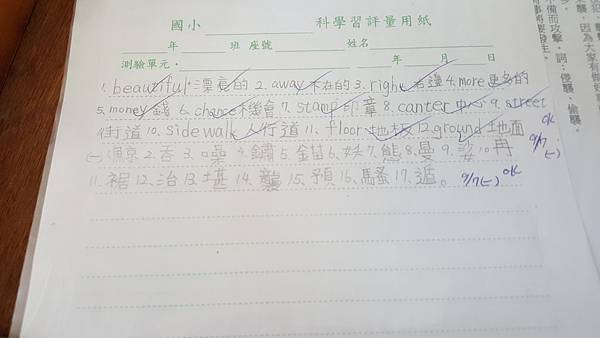 國小 科學習評量用紙
年 班 座號 姓名
測驗單元: 年 月 日
1. beautiful 漂亮的 2. away 不在的 3. right 右邊 4. more 更多的
5. money 錢 6. chance 機會 7. stamp 印章 8. canter 中心 9. street
街道 10. sidewalk 人行道 11. floor 地板 12. ground 地面
OK
9/7(一)
(一) 2. 吞 3. 4. 鏽 5. 6. 妖 7. 態 8. 曼 9. 姿 10. 再
11. 裙 12. 治 13. 堪 14. 襲 15. 預 16. 騷 17. 遁。 9/7(一) OK
不備而攻擊。詞:侵襲、偷襲。
來襲,因為大家有做好
事將要發生。